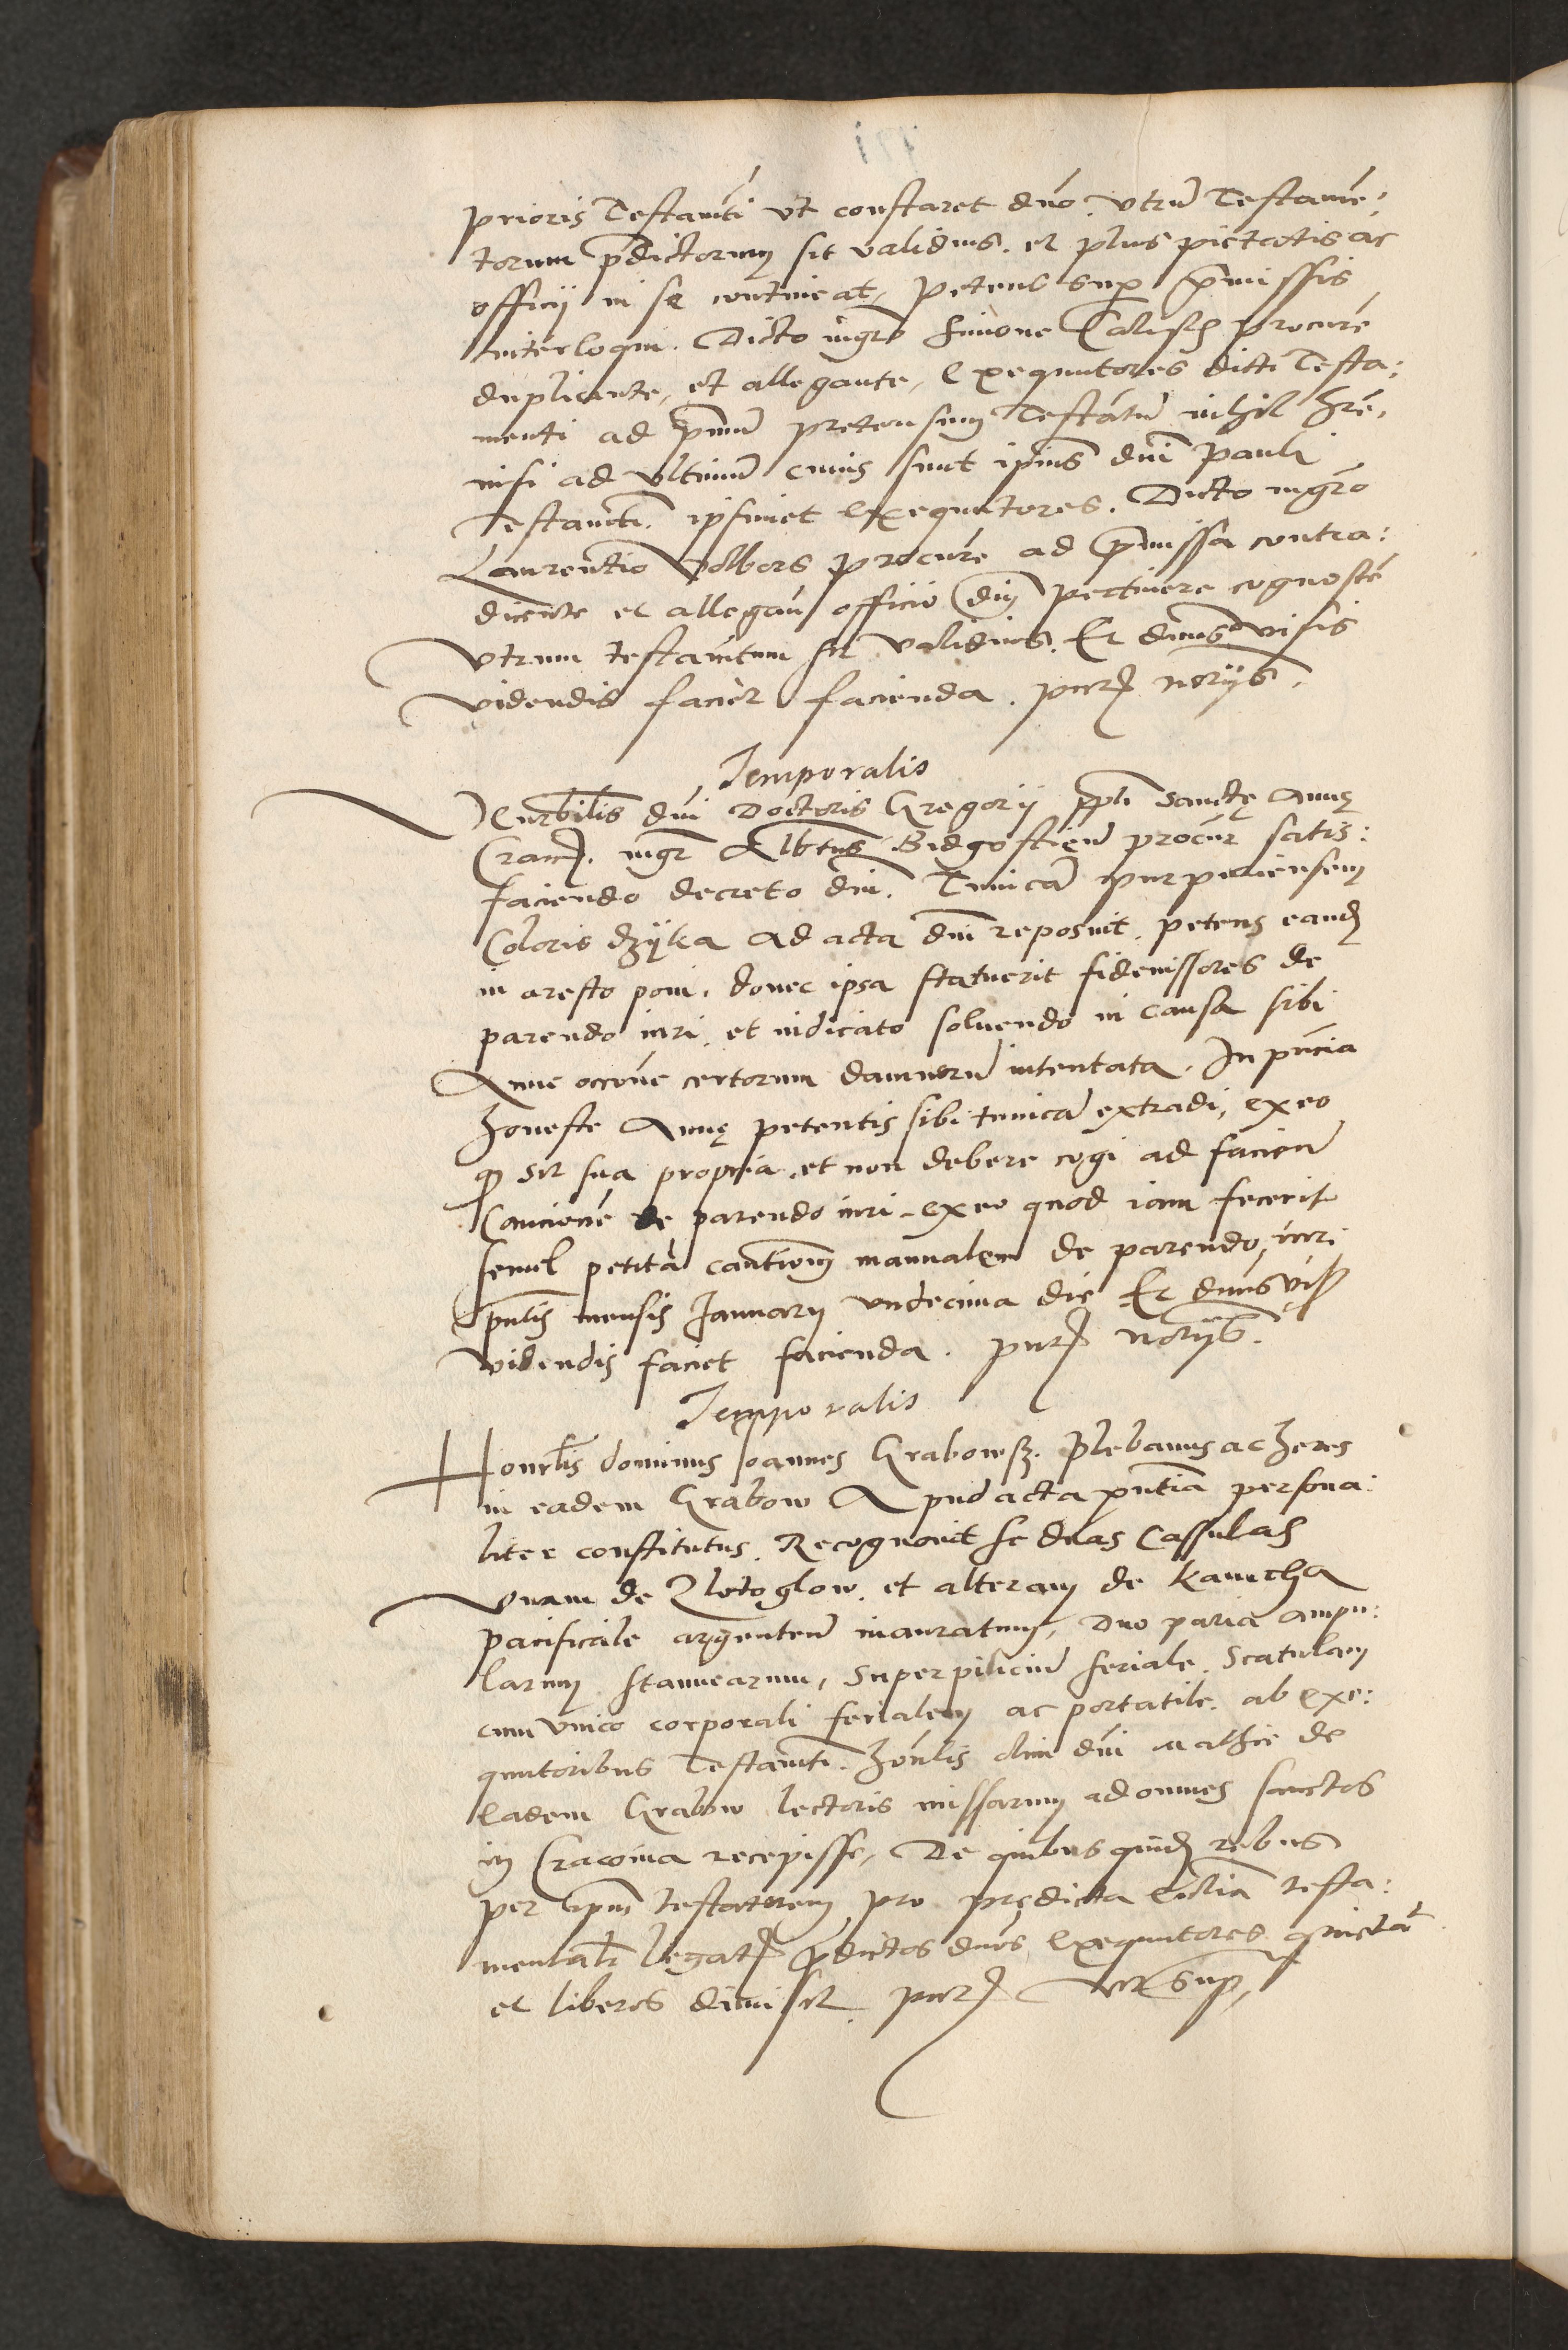 prioris Testamti vt constaret dno. vtrũ Testame:
torum pdictorum sit validius. et plus pietatis ac
officij in se contineat, petens sup pmissis
interloqui. Dicto mgro Simone Calisch procure
duplicante, et allegante, Exequutores dicti Testa:
menti ad pmũ pretensum Testatũ nihil hre,
nisi ad vltimũ cuius sunt ipius dni Pauli
Testamti. ipsimet exequutores. Dicto mgro
Laurentio Volbors procure ad pmissa contra:
dicente et allegan officio dni pertinere cognoscé
vtrum testamtum sit validius. Et dnus visis
videndis faciet facienda. pntj notrijs.
Temporalis
Venrbilis dni Doctoris Gregorij ppti Sanctę Annę
Cracj. mgr Albtus Bidgostień procur satis:
faciendo decreto dni. Tunicã purpuriensem
Coloris dzÿka ad acta dni reposuit. petens eandj
in aresto poni. donec ipsa statuerit fideiussores de
parendo iuri. et iudicato soluendo in causa sibi
Anne occone certorum damnorũ intentata. In pncia
honeste Annę petentis sibi tunicã extradi, ex eo
q sit sua propria. et non debere cogi ad faciendũ
Caucionẽ de parendo iuri. ex eo quod iam fecerit
semel petitã cautionem manualem de parendo iuri
pntis mensis January vndecima die Et dnus vis
videndis faciet facienda. pntj notrijs.
Temporalis
Honrblis dominus Joannes Grabowsz. Plebanus ac heres
in eadem Grabow Apud acta pntia persona:
liter constitutus. Recognouit se duas Cassulas
Vnam de Zlotoglow. et alteram de kamcha
pacificale argenteũ inauratum, duo paria ampu:
larum stannearum, Superpiliciũ feriale. Scatulam
cum vnico corporali ferialem ac portatile. ab exe:
quutoribus Testamti. honblis olim dni Mathie de
eadem Grabow lectoris missarum ad omnes sanctos
in Cracouia recepisse, De quibus quidj rebus
per ipm testatorem pro prędicta Ecclia testa:
mentalr legatj pdictos dnos Exequutores quietat
et liberos dimisit. pntj vt sup,